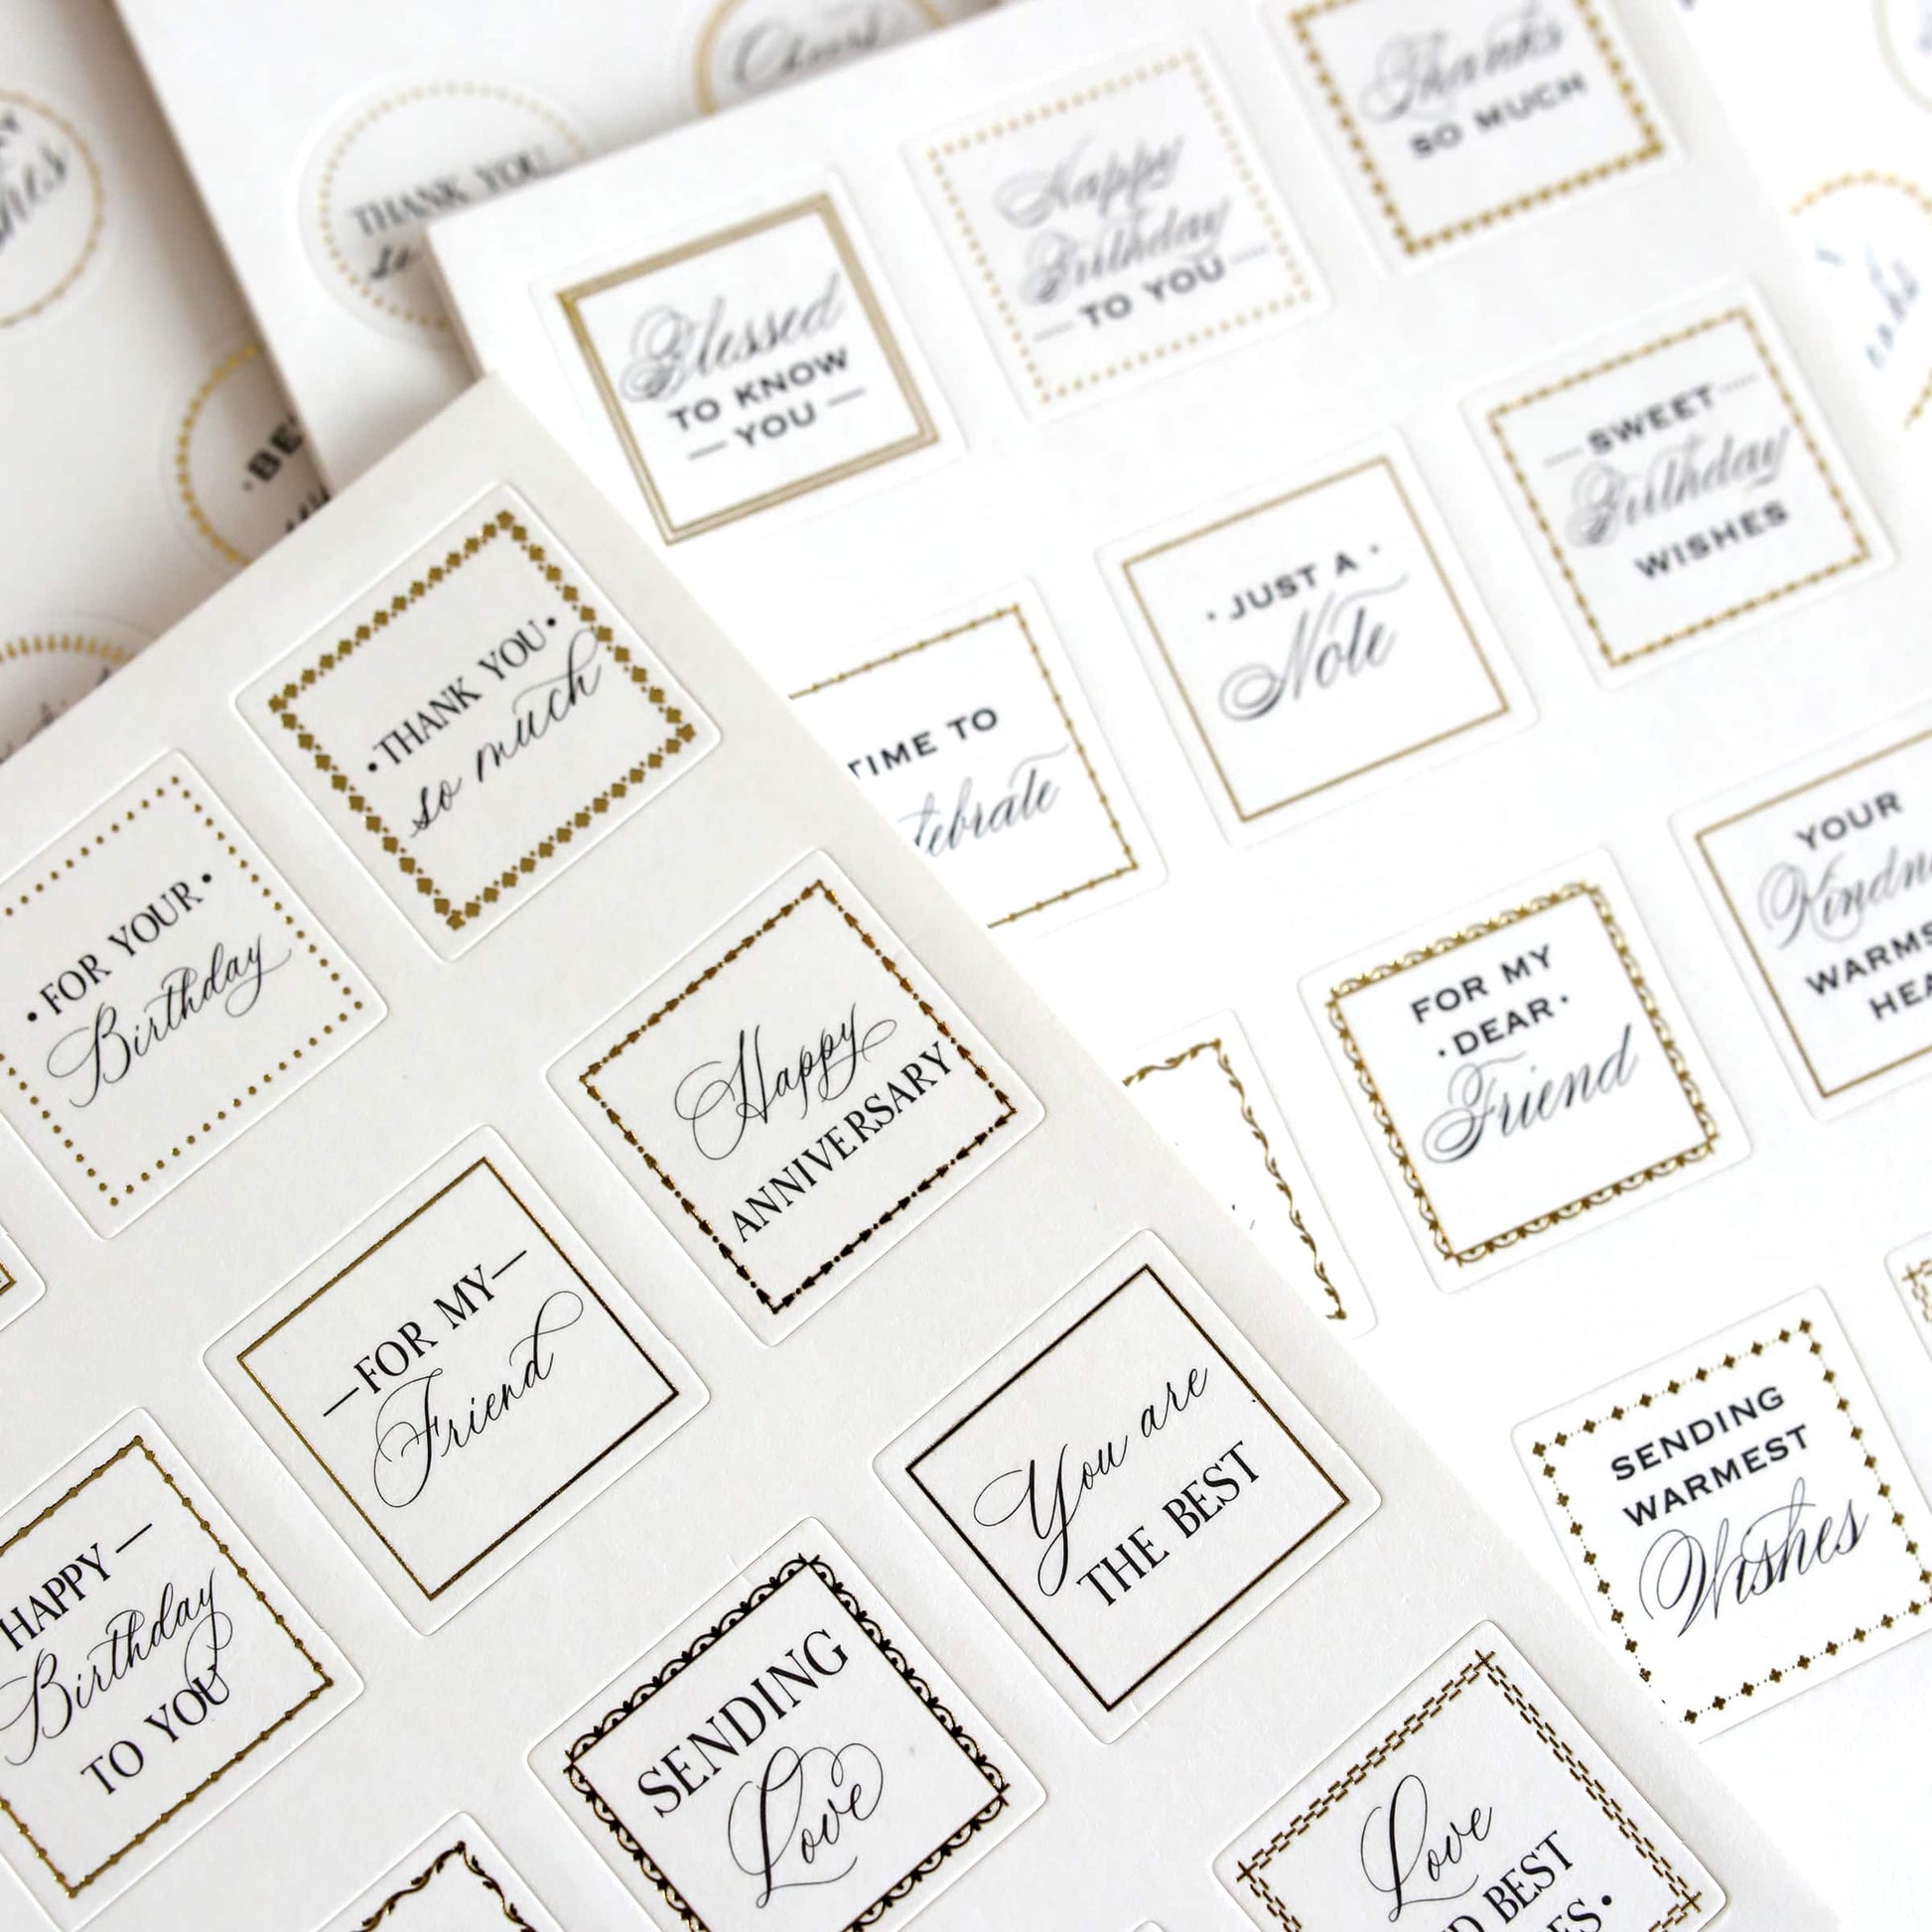 Cheers!
THANK YOU
so
Thanks
SO MUCH
Happy
Birthday
TO YOU
Blessed
TO KNOW
YOU
SWEET
Birthday
WISHES
• JUST A •
Note
TIME TO
YOUR
WARMS
HEA
FOR MY
• DEAR •
Friend
SENDING
WARMEST
Wishes
• THANK YOU •
so much
• FOR YOUR •
Birthday
Happy
ANNIVERSARY
FOR MY
Friend
You are
THE BEST
HAPPY
Birthday
TO YOU
SENDING
Love
Love
BEST